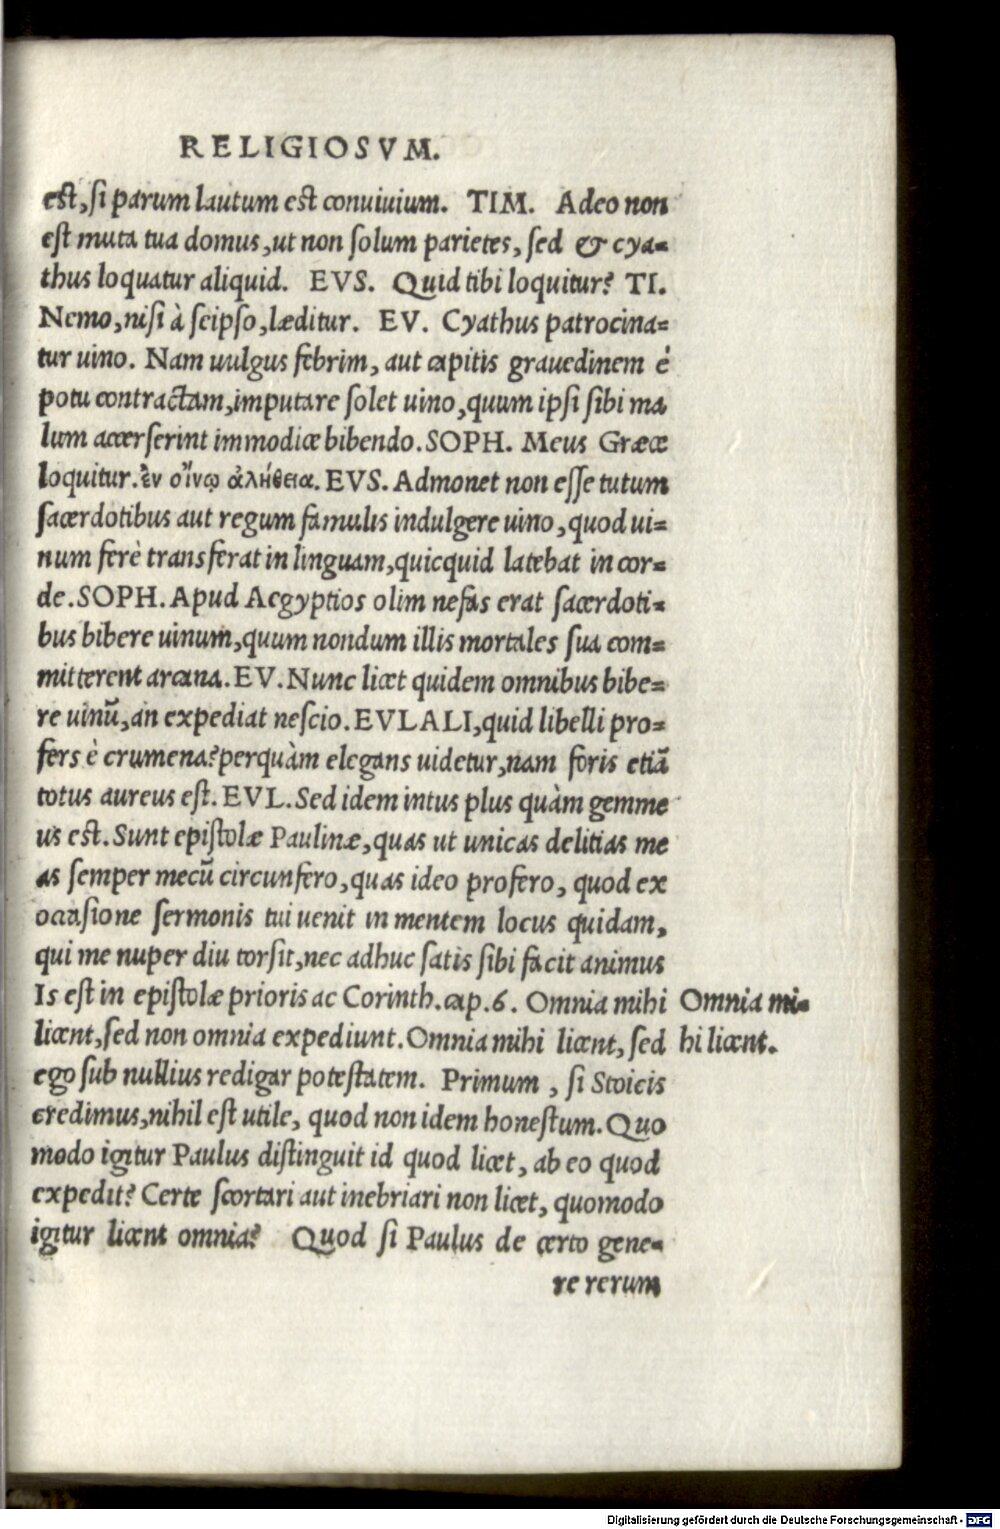 RELIGIOSVM.
est, si parum lautum est conuiuium. TIM. Adeo non
est muta tua domus, ut non solum parietes, sed & cya=
thus loquatur aliquid. EVS. Quid tibi loquitur? TI.
Nemo, nisi à seipso, læditur. EV. Cyathus patrocina=
tur uino. Nam uulgus febrim, aut capitis grauedinem è
potu contractam, imputare solet uino, quum ipsi sibi ma
lum accerserint immodice bibendo. SOPH. Meus Græce
loquitur. ἐν οἴνῳ ἀλήθεια. EVS. Admonet non esse tutum
sacerdotibus aut regum famulis indulgere uino, quod ui=
num ferè transferat in linguam, quicquid latebat in cor=
de. SOPH. Apud Aegyptios olim nefas erat sacerdoti=
bus bibere uinum, quum nondum illis mortales sua com=
mitterent arcana. EV. Nunc licet quidem omnibus bibe=
re uinũ, an expediat nescio. EVLALI, quid libelli pro=
fers è crumena? perquàm elegans uidetur, nam foris etiã
totus aureus est. EVL. Sed idem intus plus quàm gemme
us est. Sunt epistolæ Paulinæ, quas ut unicas delitias me
as semper mecũ circunfero, quas ideo profero, quod ex
occasione sermonis tui uenit in mentem locus quidam,
qui me nuper diu torsit, nec adhuc satis sibi facit animus
Is est in epistolæ prioris ac Corinth. cap. 6. Omnia mihi
licent, sed non omnia expediunt. Omnia mihi licent, sed
ego sub nullius redigar potestatem. Primum, si Stoicis
credimus, nihil est utile, quod non idem honestum. Quo
modo igitur Paulus distinguit id quod licet, ab eo quod
expedit? Certe scortari aut inebriari non licet, quomodo
igitur licent omnia? Quod si Paulus de certo gene=
re rerum
Omnia mi=
hi licent.
Digitalisierung gefördert durch die Deutsche Forschungsgemeinschaft - DFG